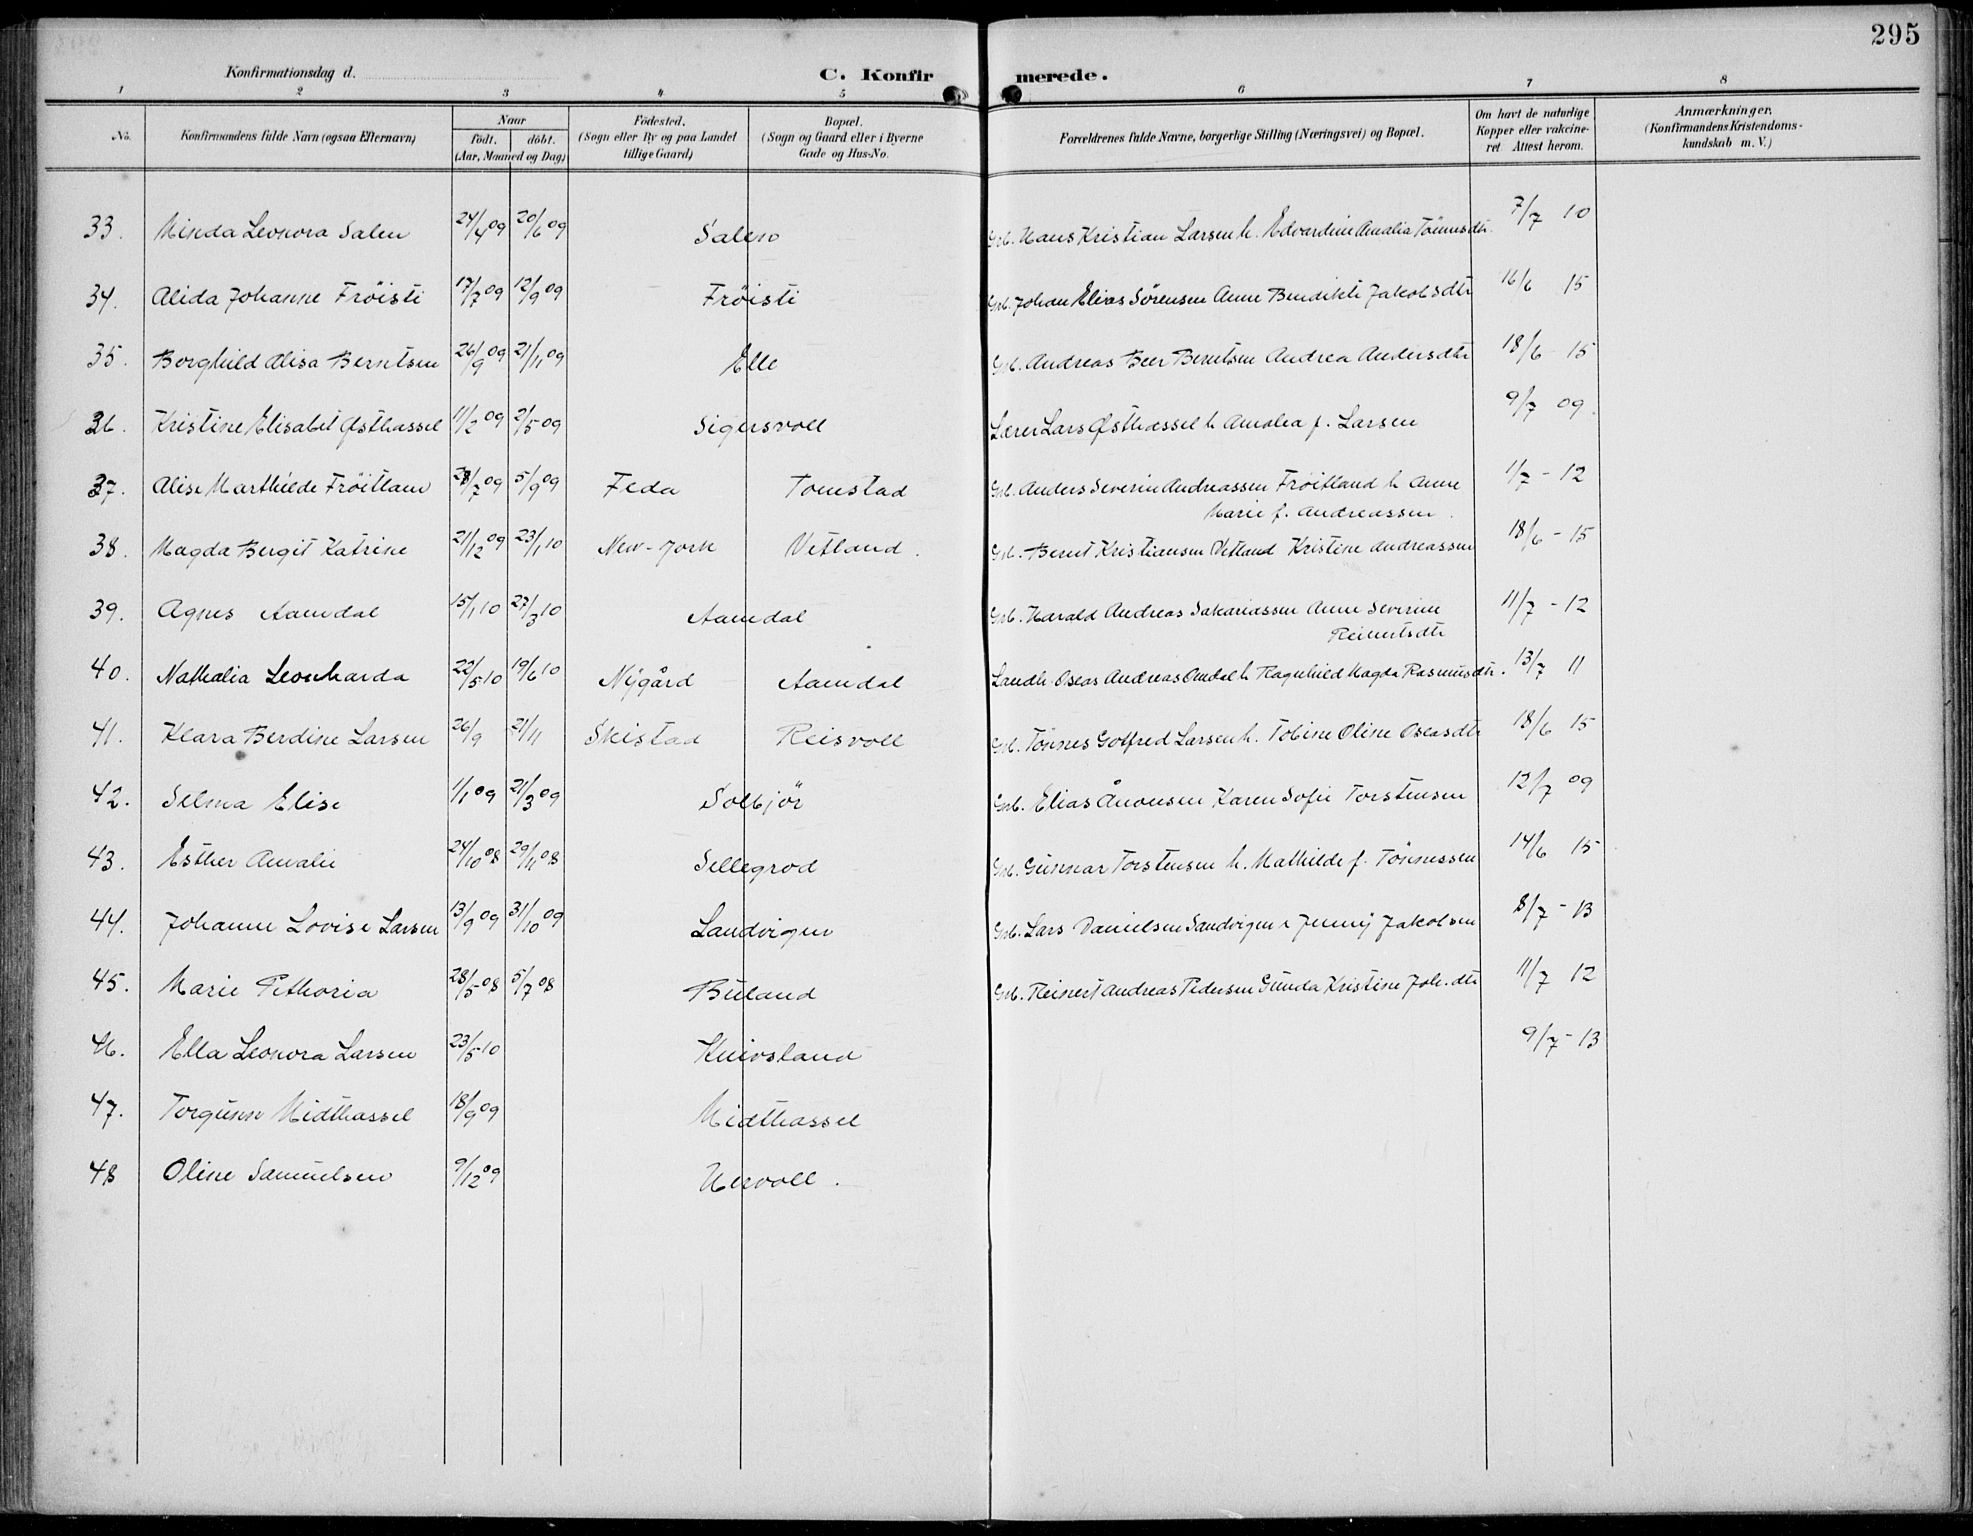 295
Konfirmationsdag d.
C. Konfirmerede.
1 2 3 4 5 6 7 8
No. Konfirmandens fulde Navn (ogsaa Efternavn) Naar Födested. Bopæl. Forældrenes fulde Navne, borgerlige Stilling (Næringsvei) og Bopæl. Om havt de naturlige Anmærkninger.
födt. döbt. (Sogn eller By og paa Landet (Sogn og Gaard eller i Byerne Kopper eller vakcine- (Konfirmandens Kristendoms-
(Aar, Maaned og Dag) tillige Gaard) Gade og Hus-No. ret Attest herom. kundskab m. V.)
33. Minda Leonora Salen 24/4 09 20/6 09 Salen Grb. Hans Kristian Larsen h. Edvardine Amalia Tönnesdtr. 7/7 10
34. Alida Johanne Fröisti 17/7 09 12/9 09 Fröisti Grb. Johan Elias Sørensen Anne Bendikte Jakobsdtr 16/6 15
35. Borghild Alisa Berntsen 26/9 09 21/11 09 Elle Grb. Andreas Beer Berntsen Andrea Andersdtr 18/6 - 15
36. Kristine Elisabet Østhassel 11/2 09 2/5 09 Sigersvoll Lærer Lars Østhassel h Amalea f. Larsen 9/7 09.
37. Alise Marthilde Fröitland 28/7 09 5/9 09 Feda Tomstad Grb. Anders Severin Andreassen Fröitland h Anne 1/7 - 12
Marie f. Andreassen.
38. Magda Bergit Katrine 21/12 09 23/1 10 New-York Vetland. Grb. Bernt Kristiansen Vetland Kristine Andreassen 18/6 - 15
39. Agnes Aamdal 15/1 10 27/3 10 Aamdal Grb. Harald Andreas Sakariassen Anne Severine 11/7 - 12
Reinertsdtr
40. Nathalia Leonharda 22/5 10 19/6 10 Nÿgård Aamdal Landh. Oseas Andreas Omdal h Ragnhild Magda Rasmusdtr. 13/7 11
41. Klara Berdine Larsen 26/9 21/11 Skistad Reisvoll Grb. Tönnes Gotfred Larsen h. Tobine Oline Oseasdtr 18/6 15
42. Selma Elise 1/1 09 21/3 09 Solbjör Grb. Elias Ånonsen Karen Sofie Torstensen 12/7 09
43. Esther Amalie 24/10 08 29/11 08 Sellegrod Grb. Gunnar Torstensen h. Mathilde f. Tönnessen 14/6 15
44. Johanne Lovise Larsen 13/9 09 31/10 09 Sandvigen Grb. Lars Danielsen Sandvigen Jenny Jakobsen 8/7 - 13
45. Marie Pethoria 28/5 08 5/7 08 Büland Grb. Reinert Andreas Pedersen Gunda Kristine Joh.dtr 11/7 12
46. Ella Leonora Larsen 23/5 10 Knivsland 9/7 - 13
47. Torgunn Midthassel 18/9 09 Midthassel
48 Oline Samuelsen 9/12 09 Hervoll.